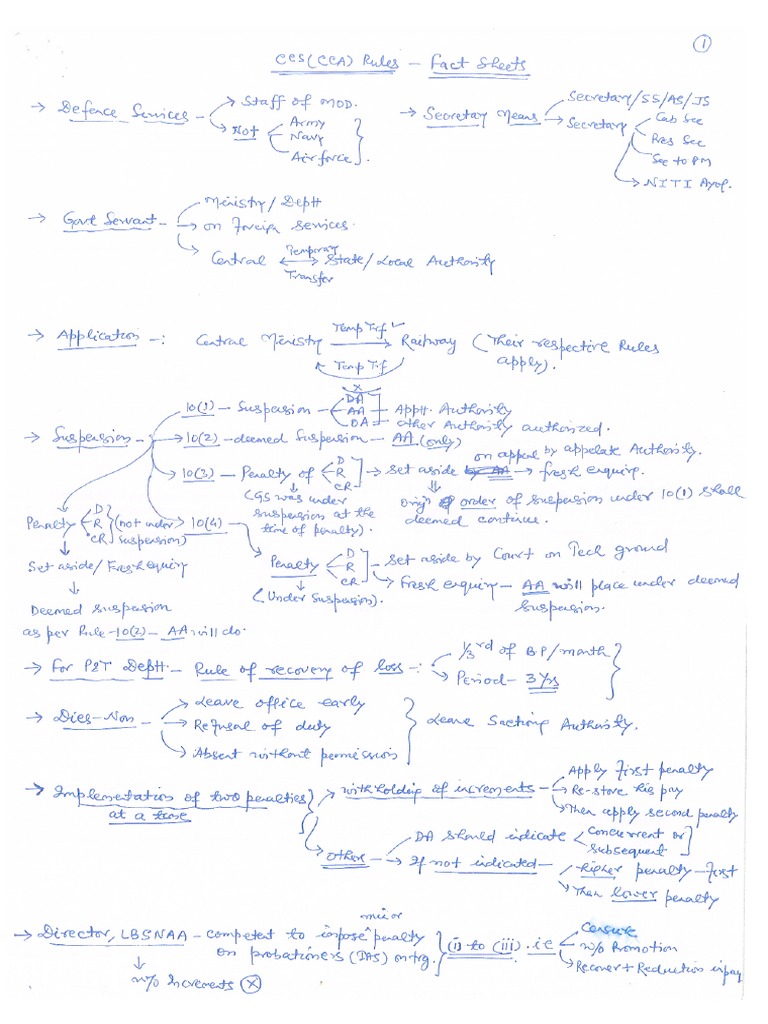 1
CCS(CCA) Rules – Fact Sheets
→ Defence Services – Staff of MOD.
Not Army
Navy
Airforce
→ Secretary Means Secretary/SS/AS/JS
Secretary Cab Sec
Pres Sec
Sec to PM
NITI Ayog.
→ Govt Servant – Ministry/Deptt
→ on Foreign services.
Central Temporary Transfer State/Local Authority
→ Application –: Central Ministry Temp Trf ✓ Railway (Their respective Rules
apply).
Temp Trf
x
→ Suspension
10(1) – Suspension – DA
AA – Apptt. Authority
DA – other Authority authorized.
→ 10(2) – deemed Suspension – AA (only)
→ 10(3) – Penalty of D
R
CR → set aside on appeal by appelate Authority.
→ fresh enquiry.
(GS was under
suspension at the
time of penalty).
order of suspension under 10(1) shall
deemed continue.
Penalty D
R
CR (not under
suspension)
Set aside/Fresh enquiry
Deemed suspension
as per Rule-10(2) – AA will do.
→ 10(4)
Penalty D
R
CR
(Under Suspension).
Set aside by Court on Tech ground
Fresh enquiry – AA will place under deemed
Suspension.
→ For P&T Deptt. – Rule of recovery of loss –: 1/3rd of BP/month
Period – 3 Yrs
→ Dies-Non – Leave office early
→ Refusal of duty
Absent without permission
Leave Sactiong Authority.
→ Implementation of two penalties
at a time
withholding of increments – Apply First penalty
Re-store his pay
Then apply second penalty
Others – DA should indicate Concurrent or
subsequent
→ If not indicated – Higher penalty – First
Then lower penalty
→ Director, LBSNAA – competent to impose ^minor penalty
on probationers (IAS) on trg.
(i) to (iii) . i.e Censure
w/o Promotion
Recover + Reduction in pay
w/o Increments X